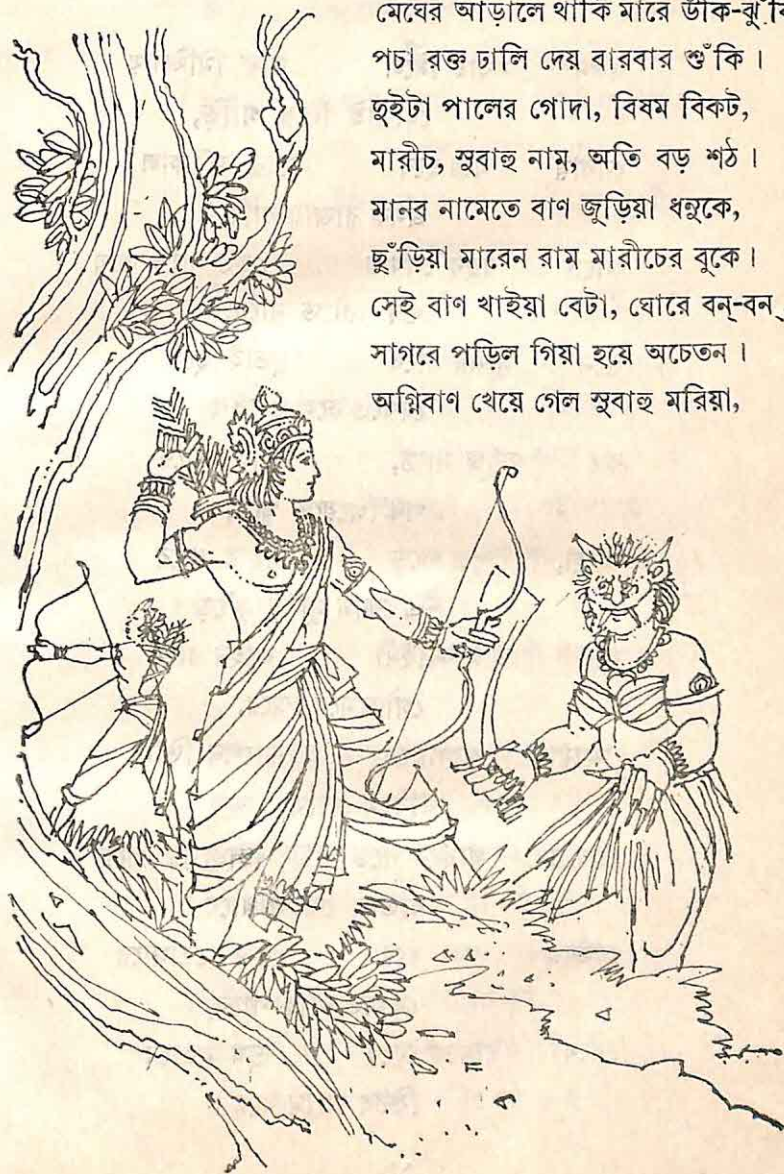 মেঘের আড়ালে থাকি মারে উঁকি-ঝুঁকি
পচা রক্ত ঢালি দেয় বারবার শুঁকি ।
দুইটা পালের গোদা, বিষম বিকট,
মারীচ, সুবাহু নাম, অতি বড় শঠ ।
মানব নামেতে বাণ জুড়িয়া ধনুকে,
ছুঁড়িয়া মারেন রাম মারীচের বুকে ।
সেই বাণ খাইয়া বেটা, ঘোরে বন্-বন্
সাগরে পাড়িল গিয়া হয়ে অচেতন ।
অগ্নিবাণ খেয়ে গেল সুবাহু মরিয়া,